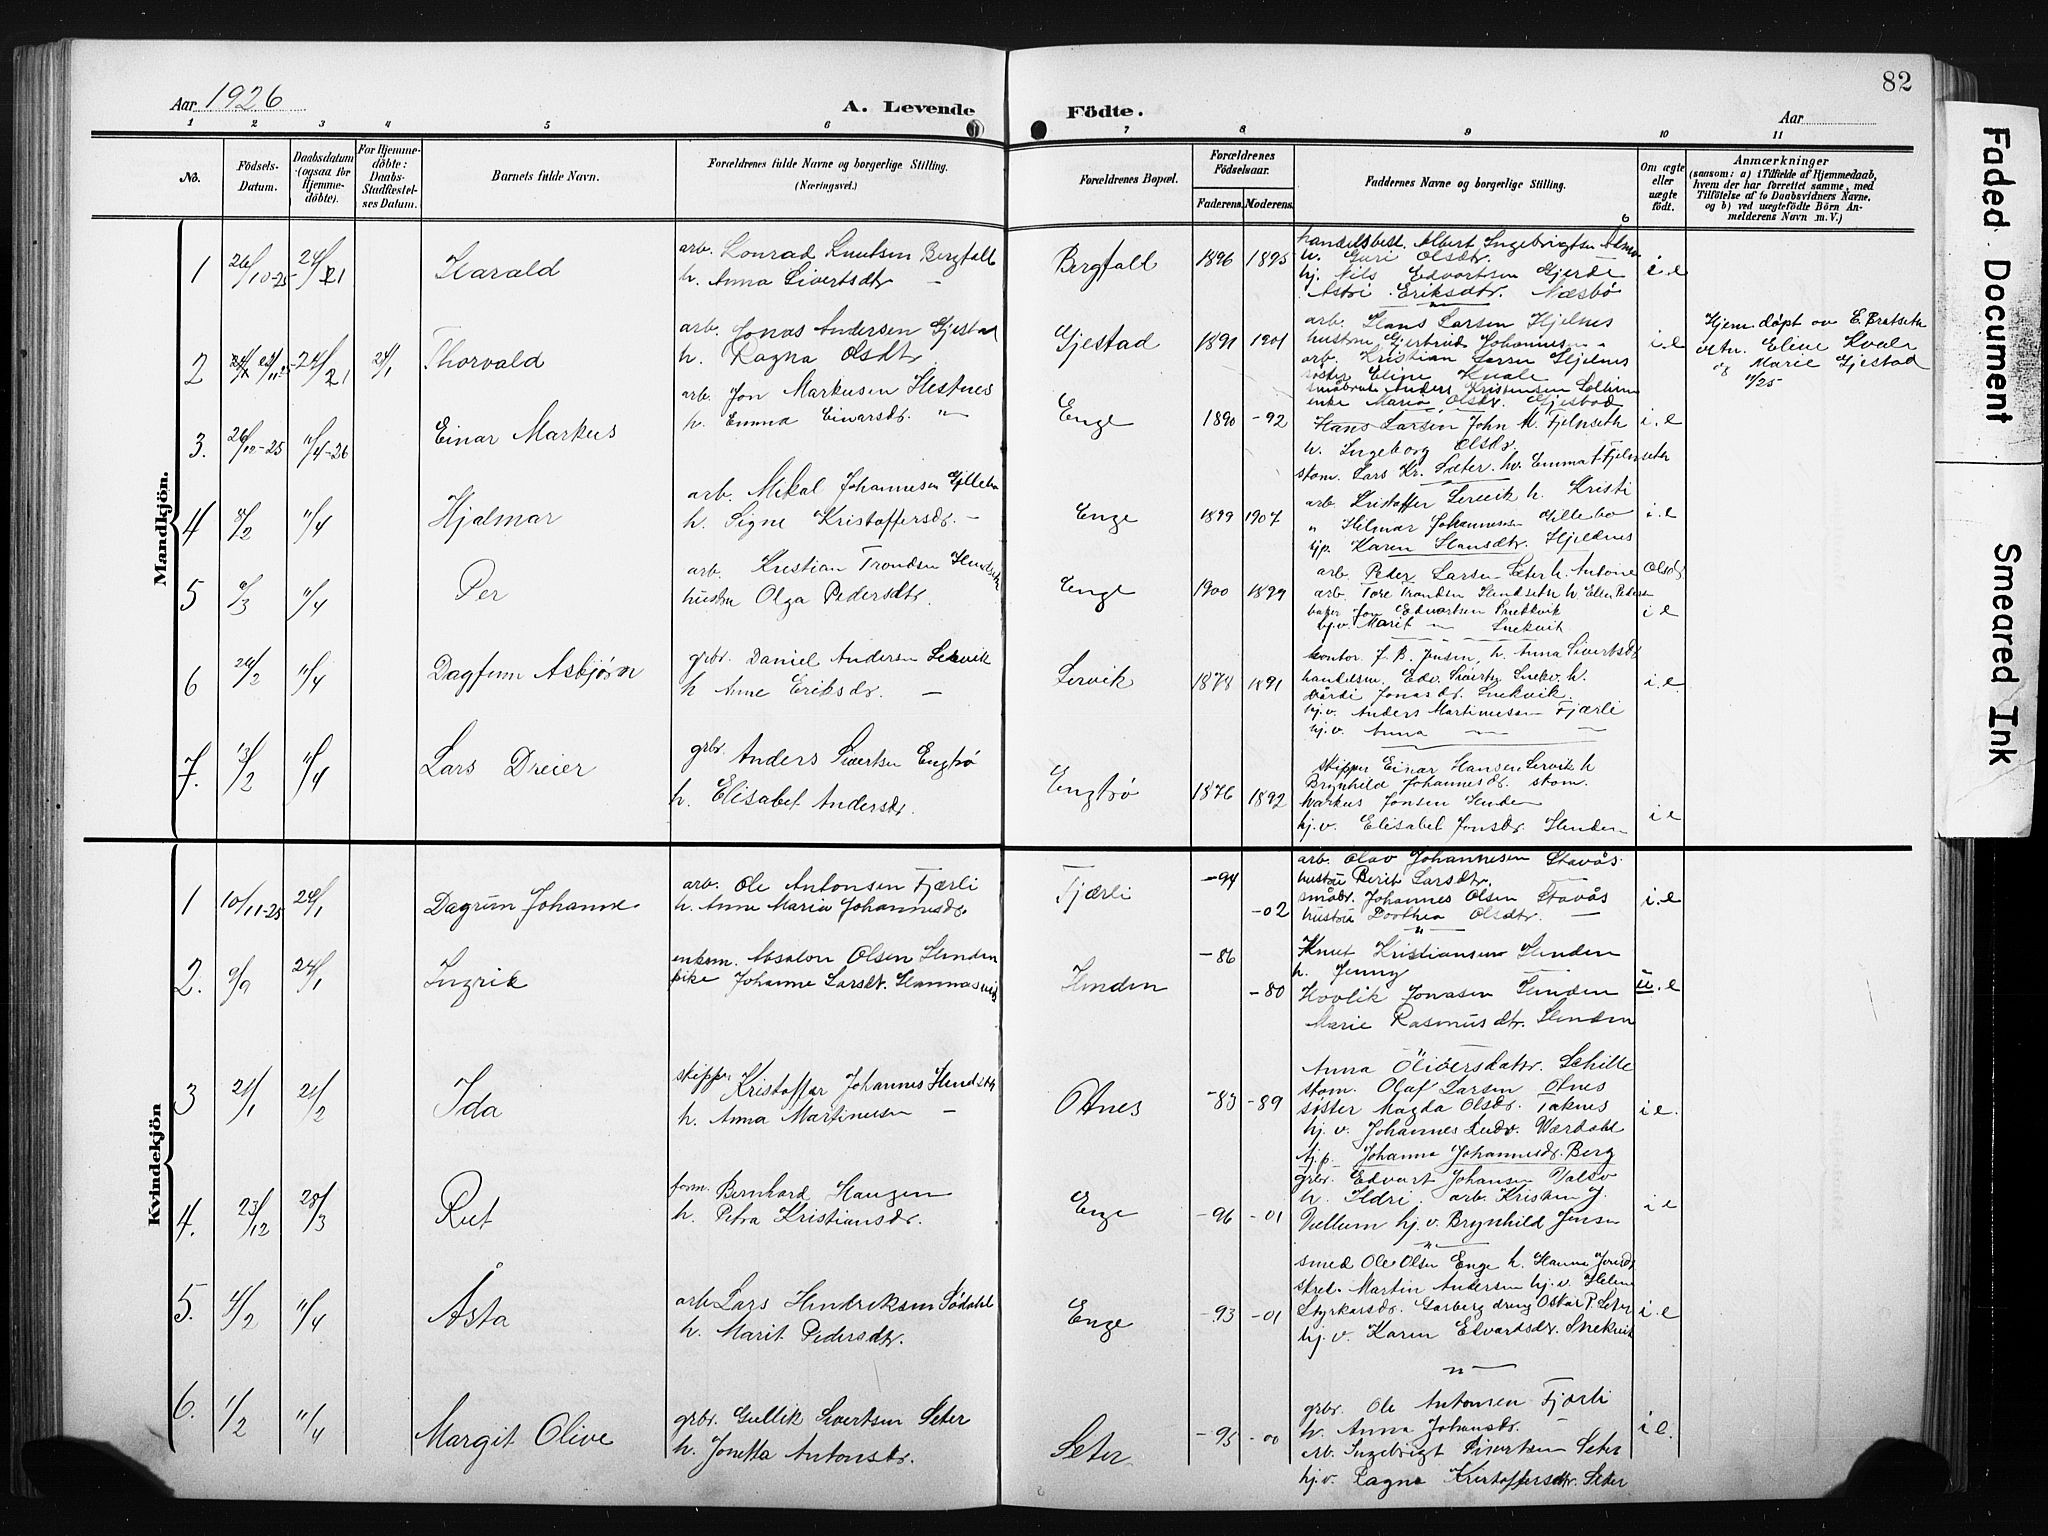 82
Aar 1926
A. Levende
Födte.
Aar
1 2 3 4 5 6 7 8 9 10 11
No.
Födsels-Datum.
Daabsdatum (ogsaa for Hjemme-döbte).
For Hjemme-döbte: Daabs-Stadfæstel-ses Datum.
Barnets fulde Navn.
Forældrenes fulde Navne og borgerlige Stilling.
(Næringsvei.)
Forældrenes Bopæl.
Forældrenes Födselsaar.
Faderens. Moderens.
Faddernes Navne og borgerlige Stilling.
Om ægte eller uægte födt.
Anmærkninger
(saasom: a) i Tilfælde af Hjemmedaab, hvem der har forrettet samme, med Tilföielse af to Daabsvidners Navne, og b) ved uægtefödte Börn An-melderens Navn m. V.)
Mandkjön.
1 26/10-25 24/1 Harald
arb. Konrad Knutsen Bergfall
h. Anna Sivertsdtr —
Bergfall 1896 1895
handelsbest. Albert Ingebrigtsen
h. Guri Olsdtr.
hj. Nils Edvartsen Gjerde
Astri Eriksdtr. Næsbø
i.e
2 24/1 24/1 Thorvald
arb. Jonas Andersen Gjestad
h. Ragna Olsdtr
Gjestad 1891 1901
arb. Hans Larsen Hjelnes
hustru Gjertrud Johannesen
arb. Kristian Larsen Hjelnes
søster Eline Kvale
småbruk. Anders Kristensen
enke Maria Olsdr. Gjestad
i.e
Hjem. døpt av E. Bratseth
vitn. Eline Kvale
og Marie Gjestad
3. 26/12-25 11/4-26 Einar Markus
arb. Jon Markusen Hestnes
h. Emma Einarsdr. "
Enge 1890 -92
Hans Larsen John M. Fjelnseth
h. Ingeborg Olsdr.
stom. Lars Kr. Sæter. hv. Emma
i.e
4 11/4 Hjalmar
arb. Mikal Johannesen Gjillebo
h. Signe Kristoffersdr. —
Enge 1899 1907
arb. Kristoffer Lervik h. Kristi
" Hilmar Johannesen Gjillebo
hjp. Karen Hansdtr. Hjeldnes
i.e
5 11/4 Per
arb. Kristian Trondsen Hendset
hustru Olga Pedersdtr.
Enge 1900 1899
arb. Peder Larsen Seter h. Antoine Olsdr
arb. Tore Trondsen Hendseth h. Ellen Peders
baker Jon Edvartsen Snekkvik
hj.v. Marit — Snekvik
i.e
6 24/2 11/4 Dagfinn Asbjørn
grbr. Daniel Andersen Lervik
h Anne Eriksdr. —
Lervik 1878 1891
kontor. J. B. Jensen, h. Anna Sivertsdr
handelsm. Edv. Sivertsen Snekv. h.
Vårdi Jonasdr. Snekvik.
hj.v. Anders Martinusen Fjærli
hj.v. Anna — —
i.e.
7. 13/2 11/4 Lars Dreier
grbr. Anders Sivertsen Engtrø
h. Elisabet Andersdr.
Engtrø 1876 1892
skipper Einar Hansen Lervik h
Brynhild Johannesdr. stom.
Markus Jonsen Henden
hj.v. Elisabet Jonsdr. Henden
i.e
Kvindekjön
1 10/11-25 24/1 Dagrun Johanne
arb. Ole Antonsen Fjærli
h. Anne Marie Johannesdr.
Fjærli -94 -02
arb. Olav Johannesen Stavås.
hustru Berit Larsdtr. —
småbr. Johannes Olsen Stavås
hustru Dorthea Olsdtr. —
i.e
2. 9/9 24/1 Ingrik
enkem. Absalon Olsen Henden
pike Johanne Larsdt. Hannasvik
Henden -86 -80
Knut Kristiansen Henden
h. Jenny —
Hovlik Jonasen Henden
Marie Rasmusdtr. Henden
u.e
3 21/1 21/2 Ida
skipper Kristoffer Johannes Hendset
h. Anna Martinusen —
Otnes -83 -89
Anna Oliversdatr. Schille
stom. Olaf Larsen Otnes
søster Magda Olsdr. Taknes
hj.v. Johannes Ludv. Værdahl
hj.p. Johanna Johannesdr. Berg
i e.
4. 23/12 28/3 Rut
form. Bernhard Haugen
h. Petra Kristiansdr.
Enge -96 -01
grbr. Edvart Johansen Valsö
h. Ildri. arb. Kristen J.
Vullum hj.v. Brynhild Jensen
i e
5. 4/2 11/4 Åsta
arb Lars Hendriksen Södahl
h. Marit Pedersdtr.
Enge -93 -01
smed Ole Olsen Enge h. Hanna Jonsdr
skred. Martin Andersen hj.v. Helene
Styrkarsdr. Garberg dreng Oskar P. Seter
hj.v. Karen Edvardsdr. Snekvik
i.e
6. 1/2 11/4 Margit Olive
grbr. Gullik Sivertsen Seter
h. Jonetta Antonsdr.
Seter. -95 -00
grbr. Ole Antonsen Fjærli
h. Anna Johansdr. —
arb. Ingebrigt Sivertsen Seter
hj.v. Ragna Kristoffersdtr. Seter
i e.
Faded Document
Smeared Ink